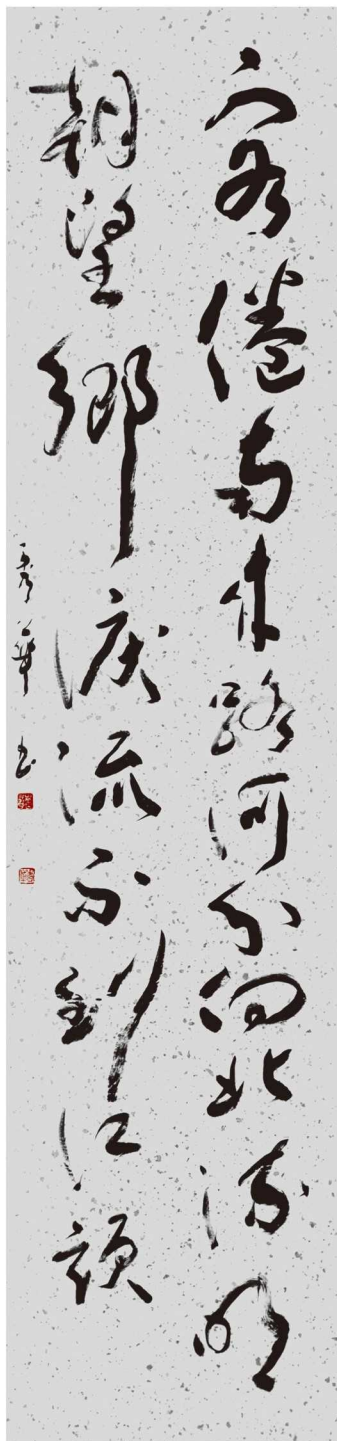 客倦南来路河分向北流明
朝望鄉淚流不到江頭
秀華书